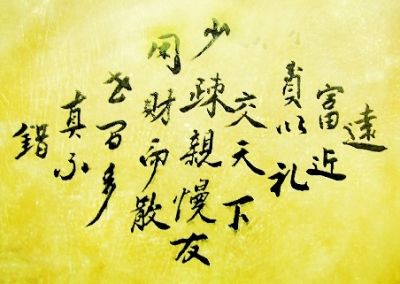 遠
富近
貧以礼
交天下
少疎親慢友
因財而散
世间多
真不
錯